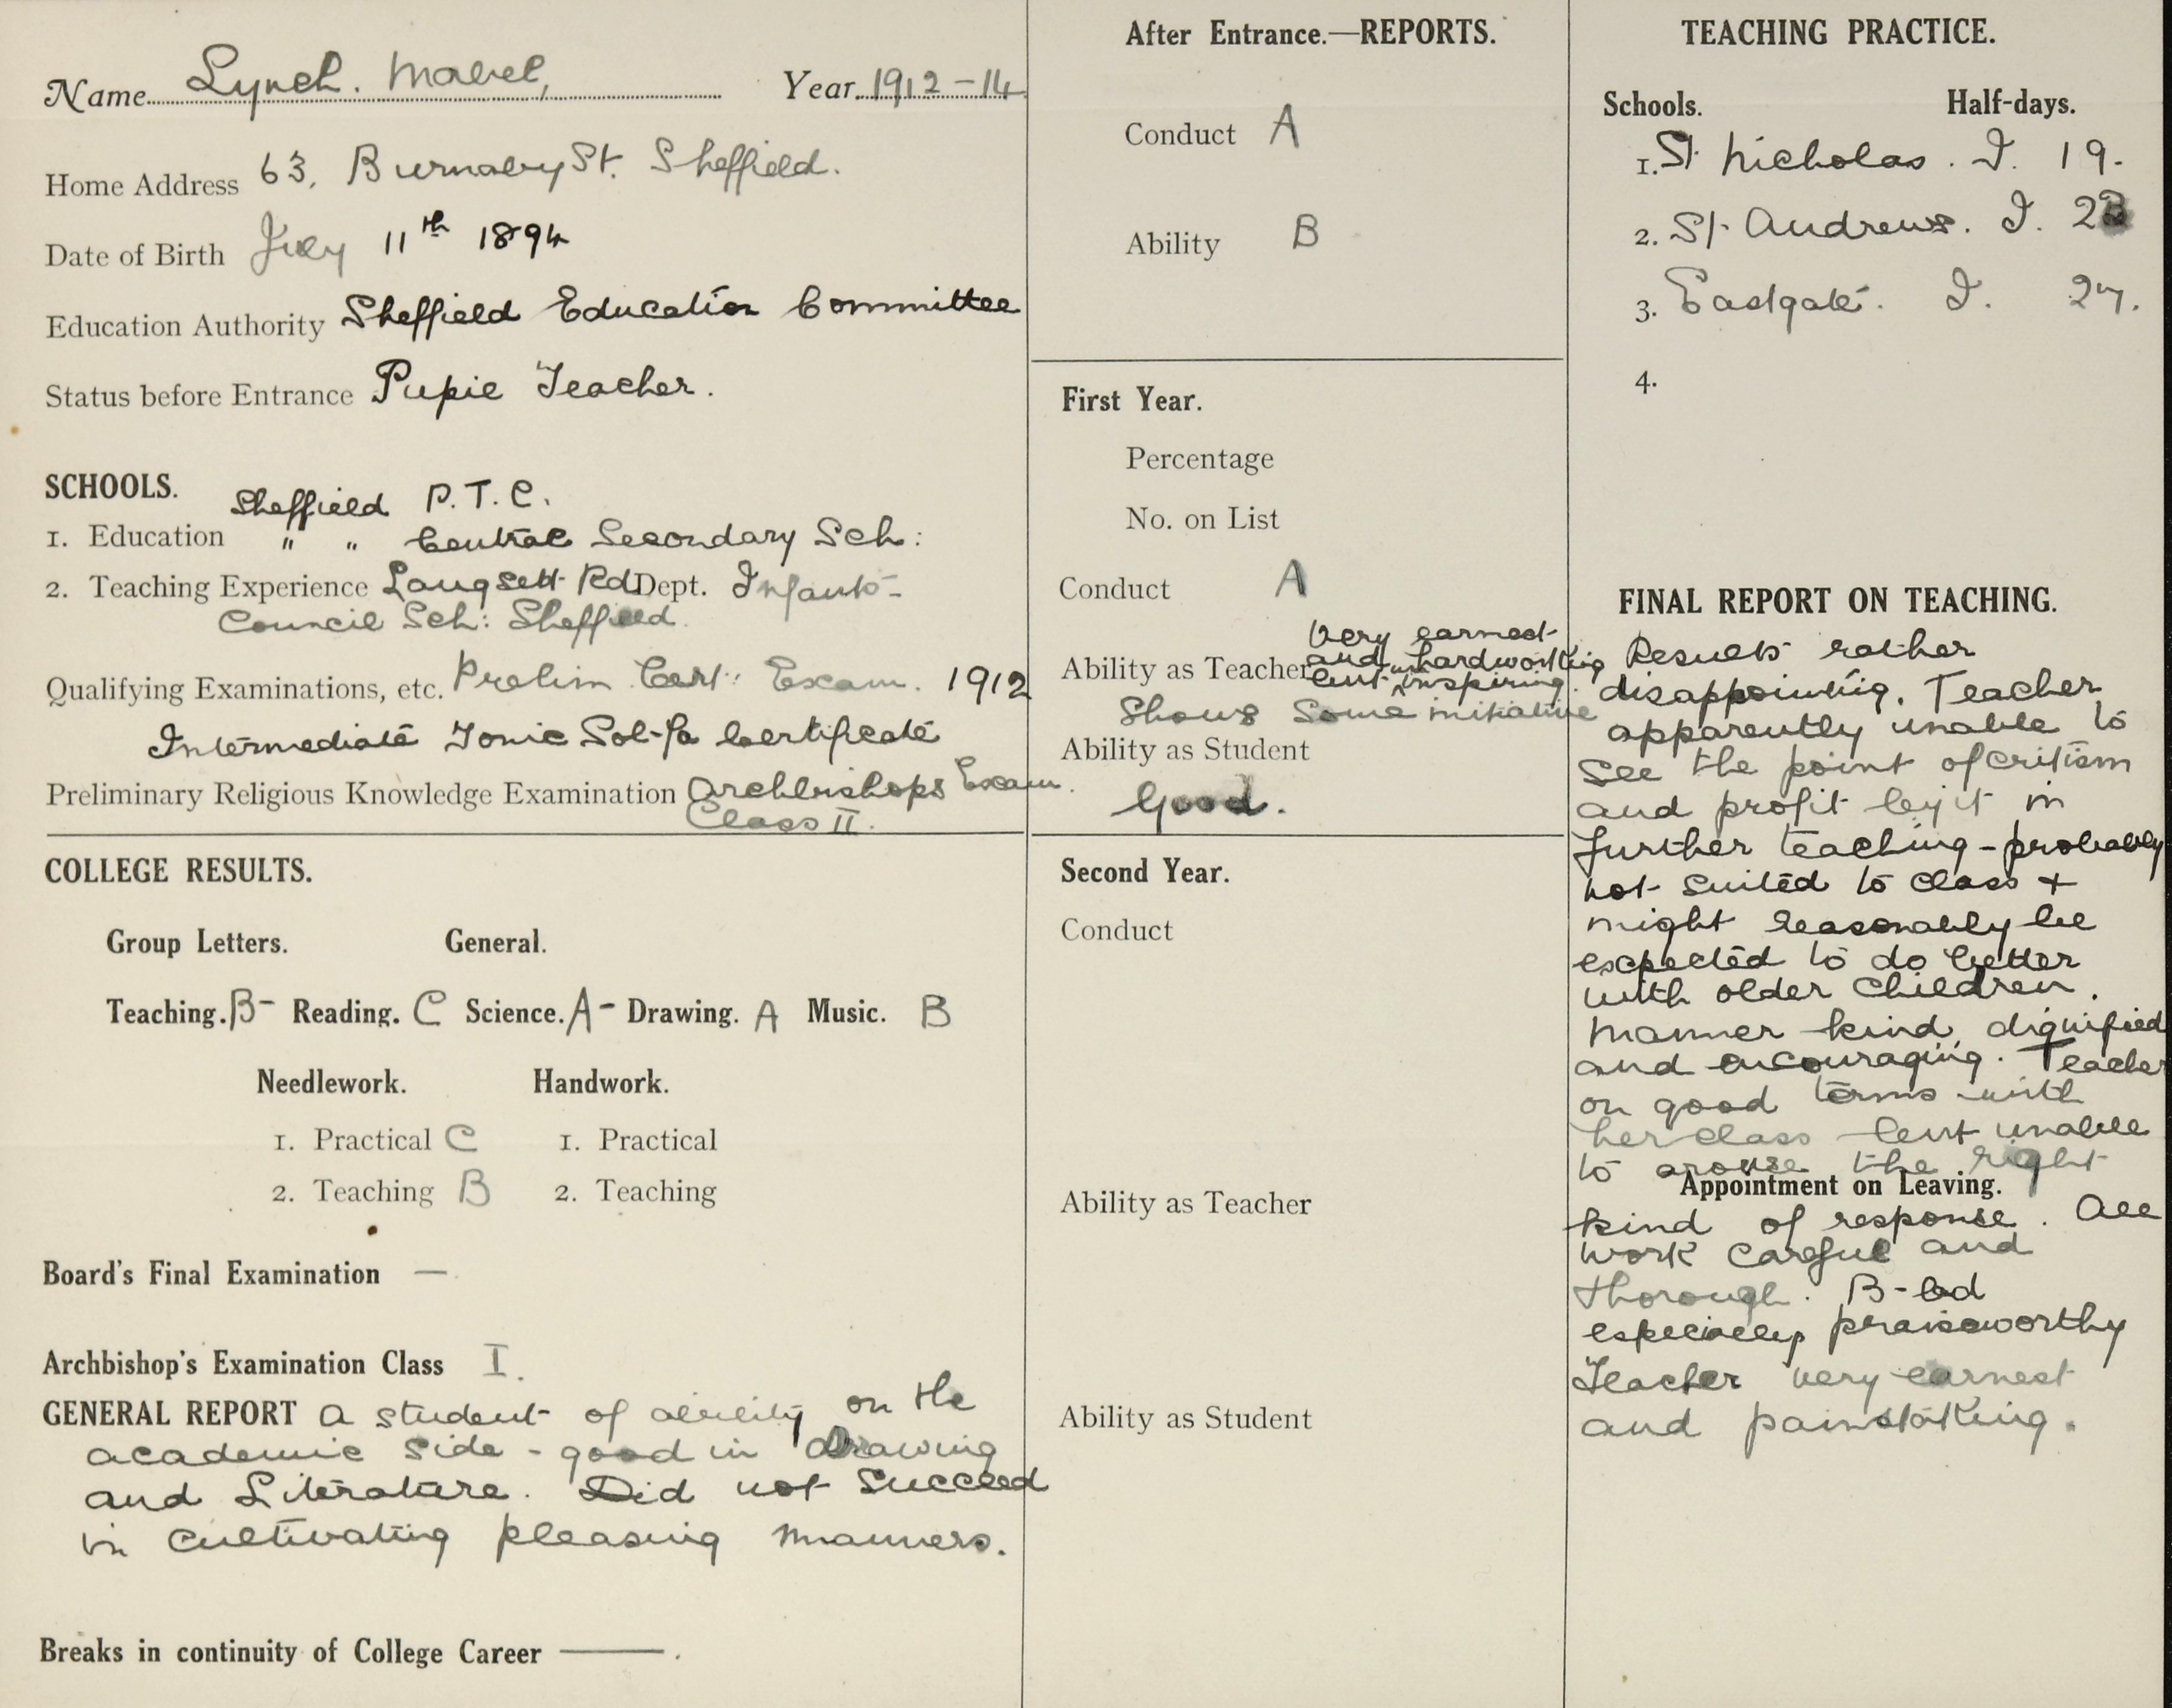 Name Lynch. Mabel, Year 1912-14
Home Address 63, Burnaby St. Sheffield.
Date of Birth July 11th 1894
Education Authority Sheffield Education Committee
Status before Entrance Pupil Teacher.
SCHOOLS.
Sheffield P. T. C.
1. Education " " Central Secondary Sch:
2. Teaching Experience Langsett Rd Dept. Infants-
Council Sch: Sheffield.
Qualifying Examinations, etc. Prelim Cert: Exam. 1912
Intermediate Tonic Sol-fa Certificate
Preliminary Religious Knowledge Examination Archbishops Exam.
Class II.
COLLEGE RESULTS.
Group Letters. General.
Teaching. B- Reading. C Science. A- Drawing. A Music. B
Needlework. Handwork.
1. Practical C 1. Practical
2. Teaching B 2. Teaching
Board's Final Examination —
Archbishop's Examination Class I.
GENERAL REPORT A student of ability on the
academic side - good in Drawing
and Literature. Did not succeed
in cultivating pleasing manners.
Breaks in continuity of College Career ——.
After Entrance.—REPORTS.
Conduct A
Ability B
First Year.
Percentage
No. on List
Conduct A
Very earnest
Ability as Teacher and hardworking
but uninspiring.
Shows some initiative
Ability as Student
Good.
Second Year.
Conduct
Ability as Teacher
Ability as Student
TEACHING PRACTICE.
Schools. Half-days.
1. St. Nicholas. I. 19.
2. St. Andrews. I.
3. Eastgate. I. 27.
4.
FINAL REPORT ON TEACHING.
Results rather
disappointing. Teacher
apparently unable to
see the point of critism
and profit by it in
further teaching - probably
not suited to class +
might reasonably be
expected to do better
with older children.
Manner kind, dignified
and encouraging. Teacher
on good terms with
her class but unable
to arouse the right
Appointment on Leaving.
kind of response. All
work careful and
thorough. B-bd
especially praiseworthy
Teacher very earnest
and painstaking.